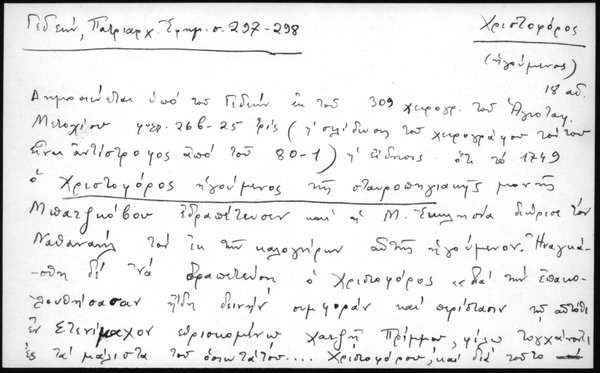 Γεδεών, Πατριαρχ. Ἐφημ. σ. 297-298
Χριστοφόρος
(ἡγούμενος)
18 αἰ.
Δημοσιεύεται ὑπό τοῦ Γεδεών ἐκ τοῦ 309 χειρογρ. τοῦ Ἁγιοταφ.
Μετοχίου φυλ. 26β-25 τρίς (ἡ σελίδωσις τοῦ χειρογράφου τούτου
εἶναι ἀντίστροφος ἀπό τοῦ 80-1) ἡ εἴδησις ὅτι τό 1749
ὁ Χριστοφόρος ἡγούμενος τῆς σταυροπηγιακῆς μονῆς
Μπατζκόβου ἐδραπέτευσεν καί ἡ Μ. Ἐκκλησία διώρισε τόν
Ναθαναήλ τόν ἐκ τῶν καλογήρων αὐτῆς ἡγούμενον. Ἠναγκά-
-σθη δέ νά δραπετεύσῃ ὁ Χριστοφόρος «διά τήν ἐπακο-
λουθήσασαν ἤδη δεινήν συμφοράν καί περίστασιν τῷ αὐτόθι
ἐν Στενιμάχου εὑρισκομένῳ χατζῆ Πρίμμῳ, φίλῳ τυγχάνοντι
ἐς τά μάλιστα τοῦ ὁσιωτάτου.... Χριστοφόρου, καί διά τοῦτο